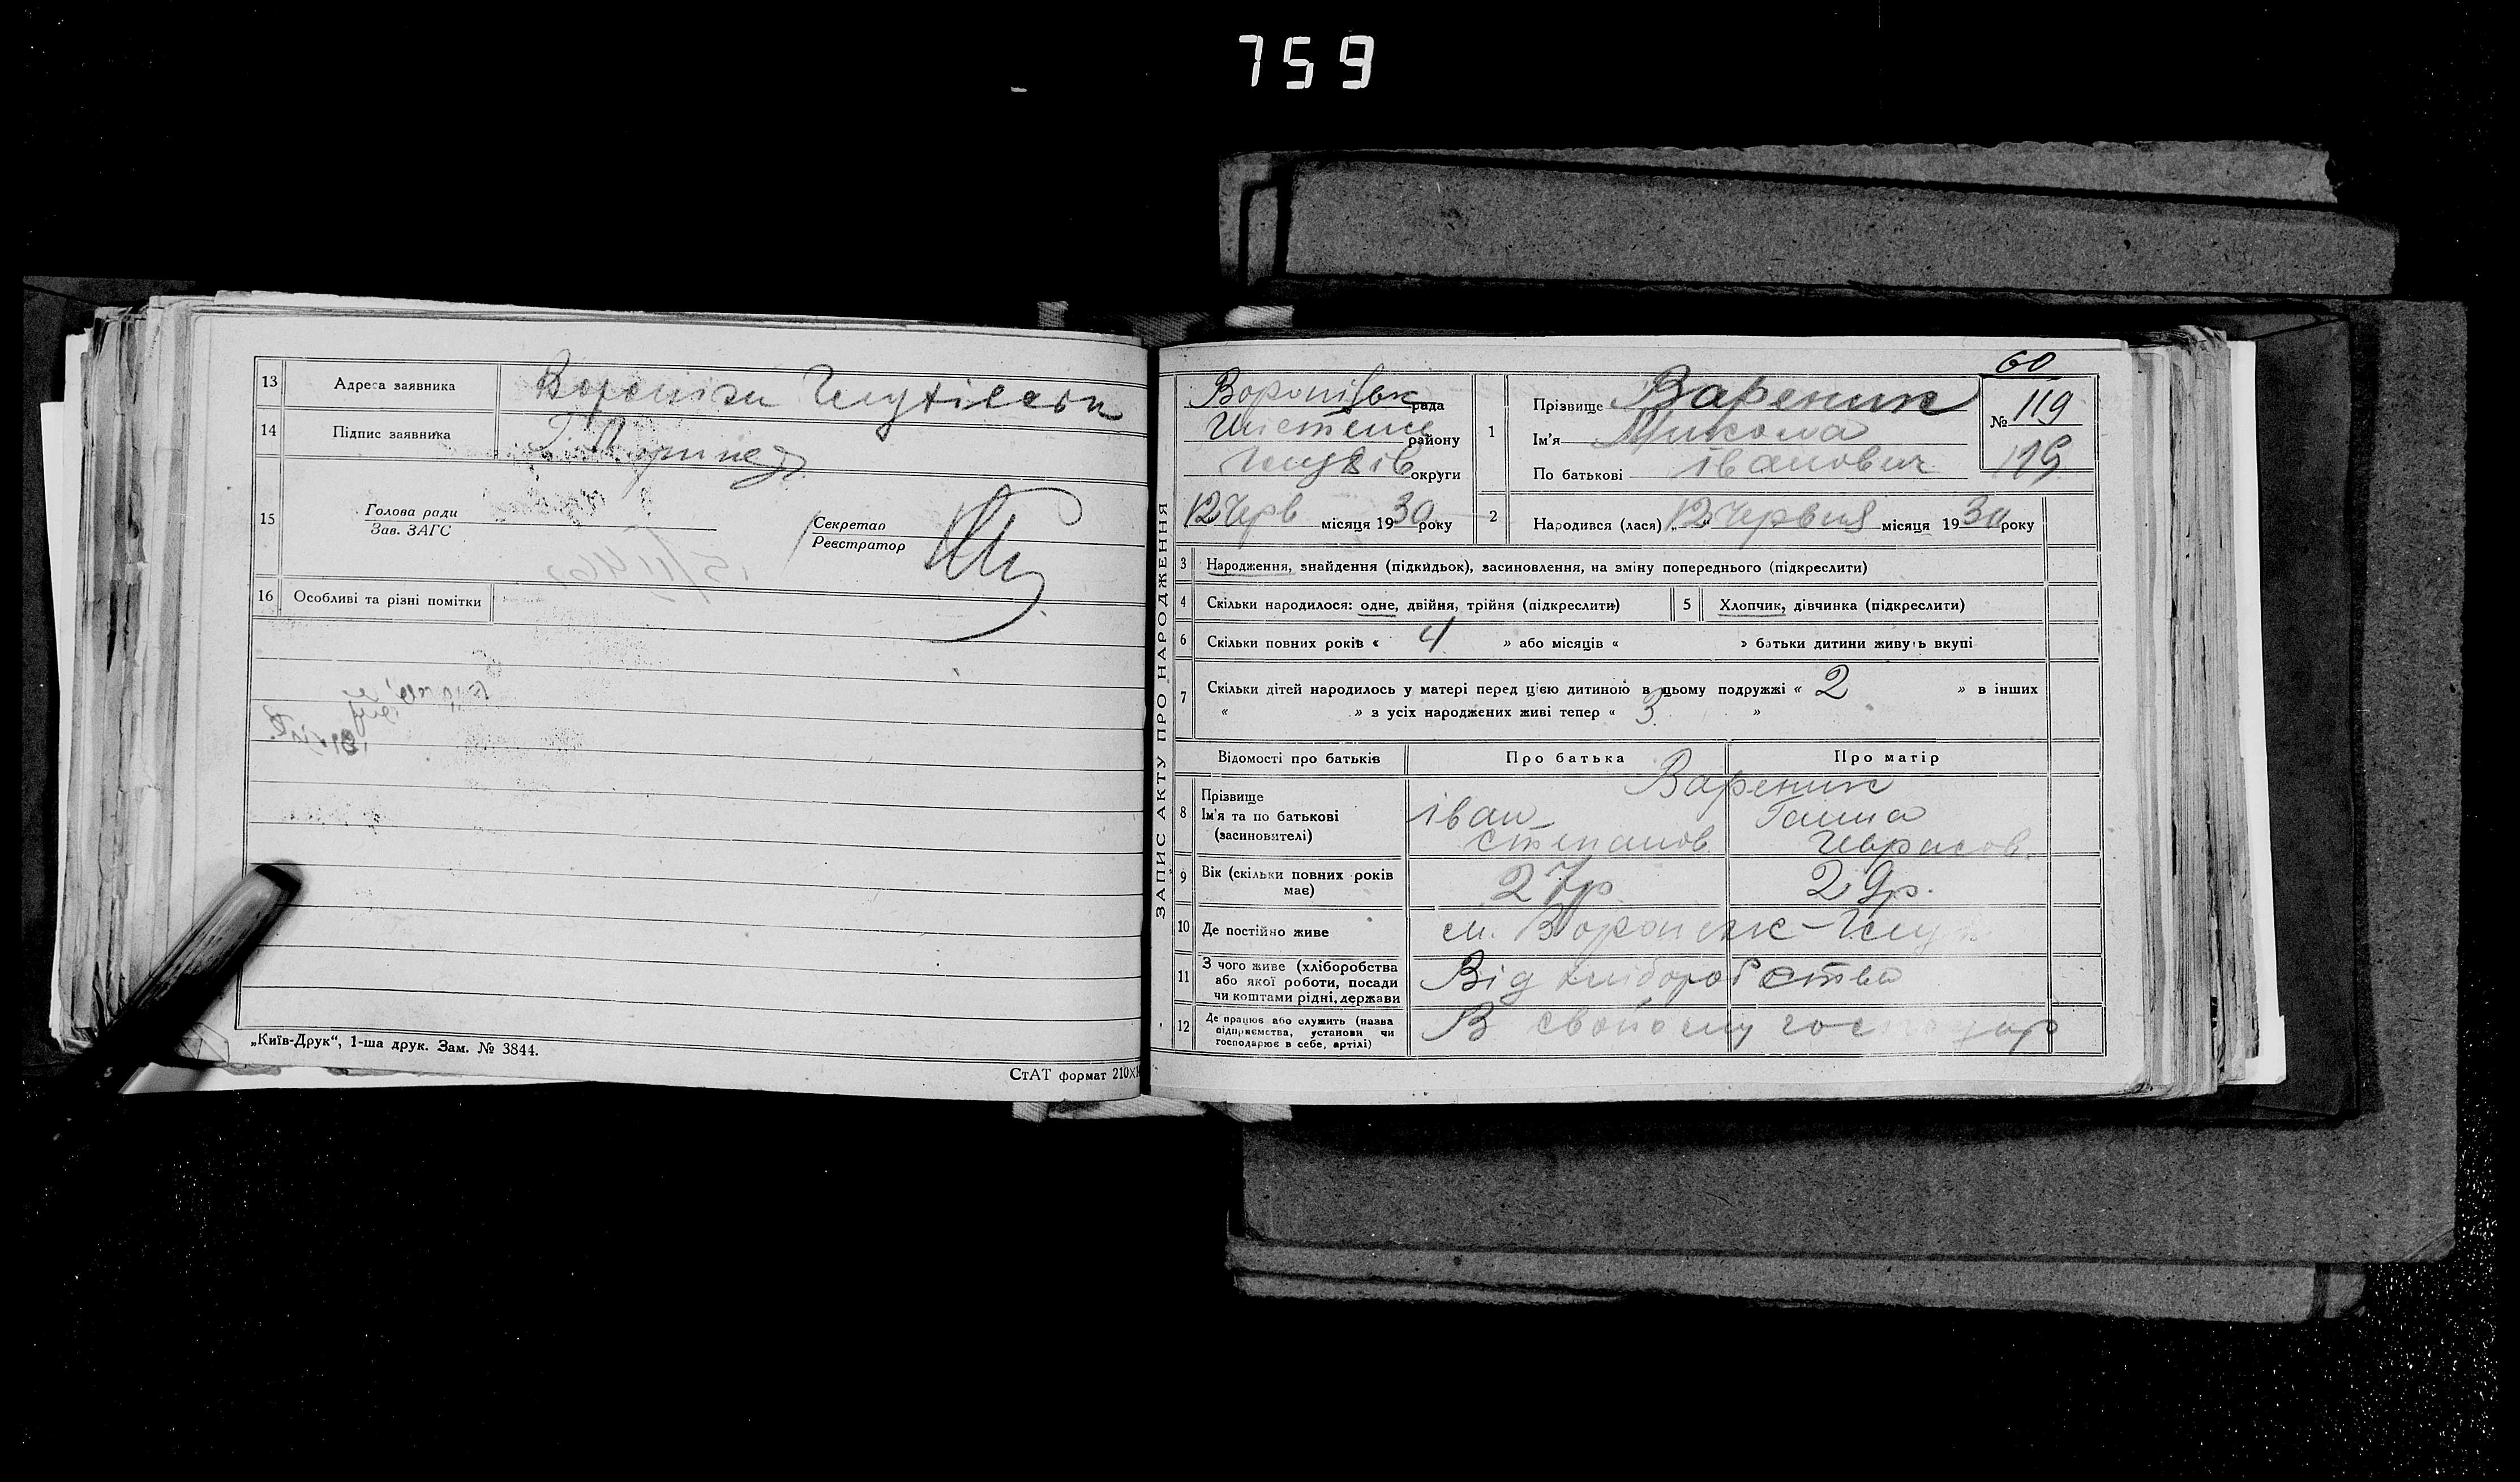 759
13 Адреса заявника
14 Підпис заявника
15 Голова ради
Зав. ЗАГС
Секретар
Реєстратор
16 Особливі та різні помітки
„Київ-Друк“, 1-ша друк. Зам. № 3844.
СтАТ формат 210×1
ЗАПИС АКТУ ПРО НАРОДЖЕННЯ
60
рада
району
округи
12 Черв місяця 1930 року
1 Прізвище Вареник
Ім'я Микола
По батькові іванович
№ 119
119
2 Народився (лася) „12 Червня місяця 1930 року
3 Народження, знайдення (підкидьок), засиновлення, на зміну попереднього (підкреслити)
4 Скільки народилося: одне, двійня, трійня (підкреслити)
5 Хлопчик, дівчинка (підкреслити)
6 Скільки повних років « 4 » або місяців « » батьки дитини живуть вкупі
7 Скільки дітей народилось у матері перед цією дитиною в цьому подружжі « 2 » в інших
« » з усіх народжених живі тепер « 3 »
Відомості про батьків Про батька Про матір
8 Прізвище Вареник
Ім'я та по батькові іван Ганна
(засиновителі) степанов
9 Вік (скільки повних років має) 27р. 29р.
10 Де постійно живе см. Воронеж-
11 З чого живе (хліборобства або якої роботи, посади чи коштами рідні, держави Від хліборобства
12 Де працює або служить (назва підприємства, установи чи господарює в себе, артілі) В свойому